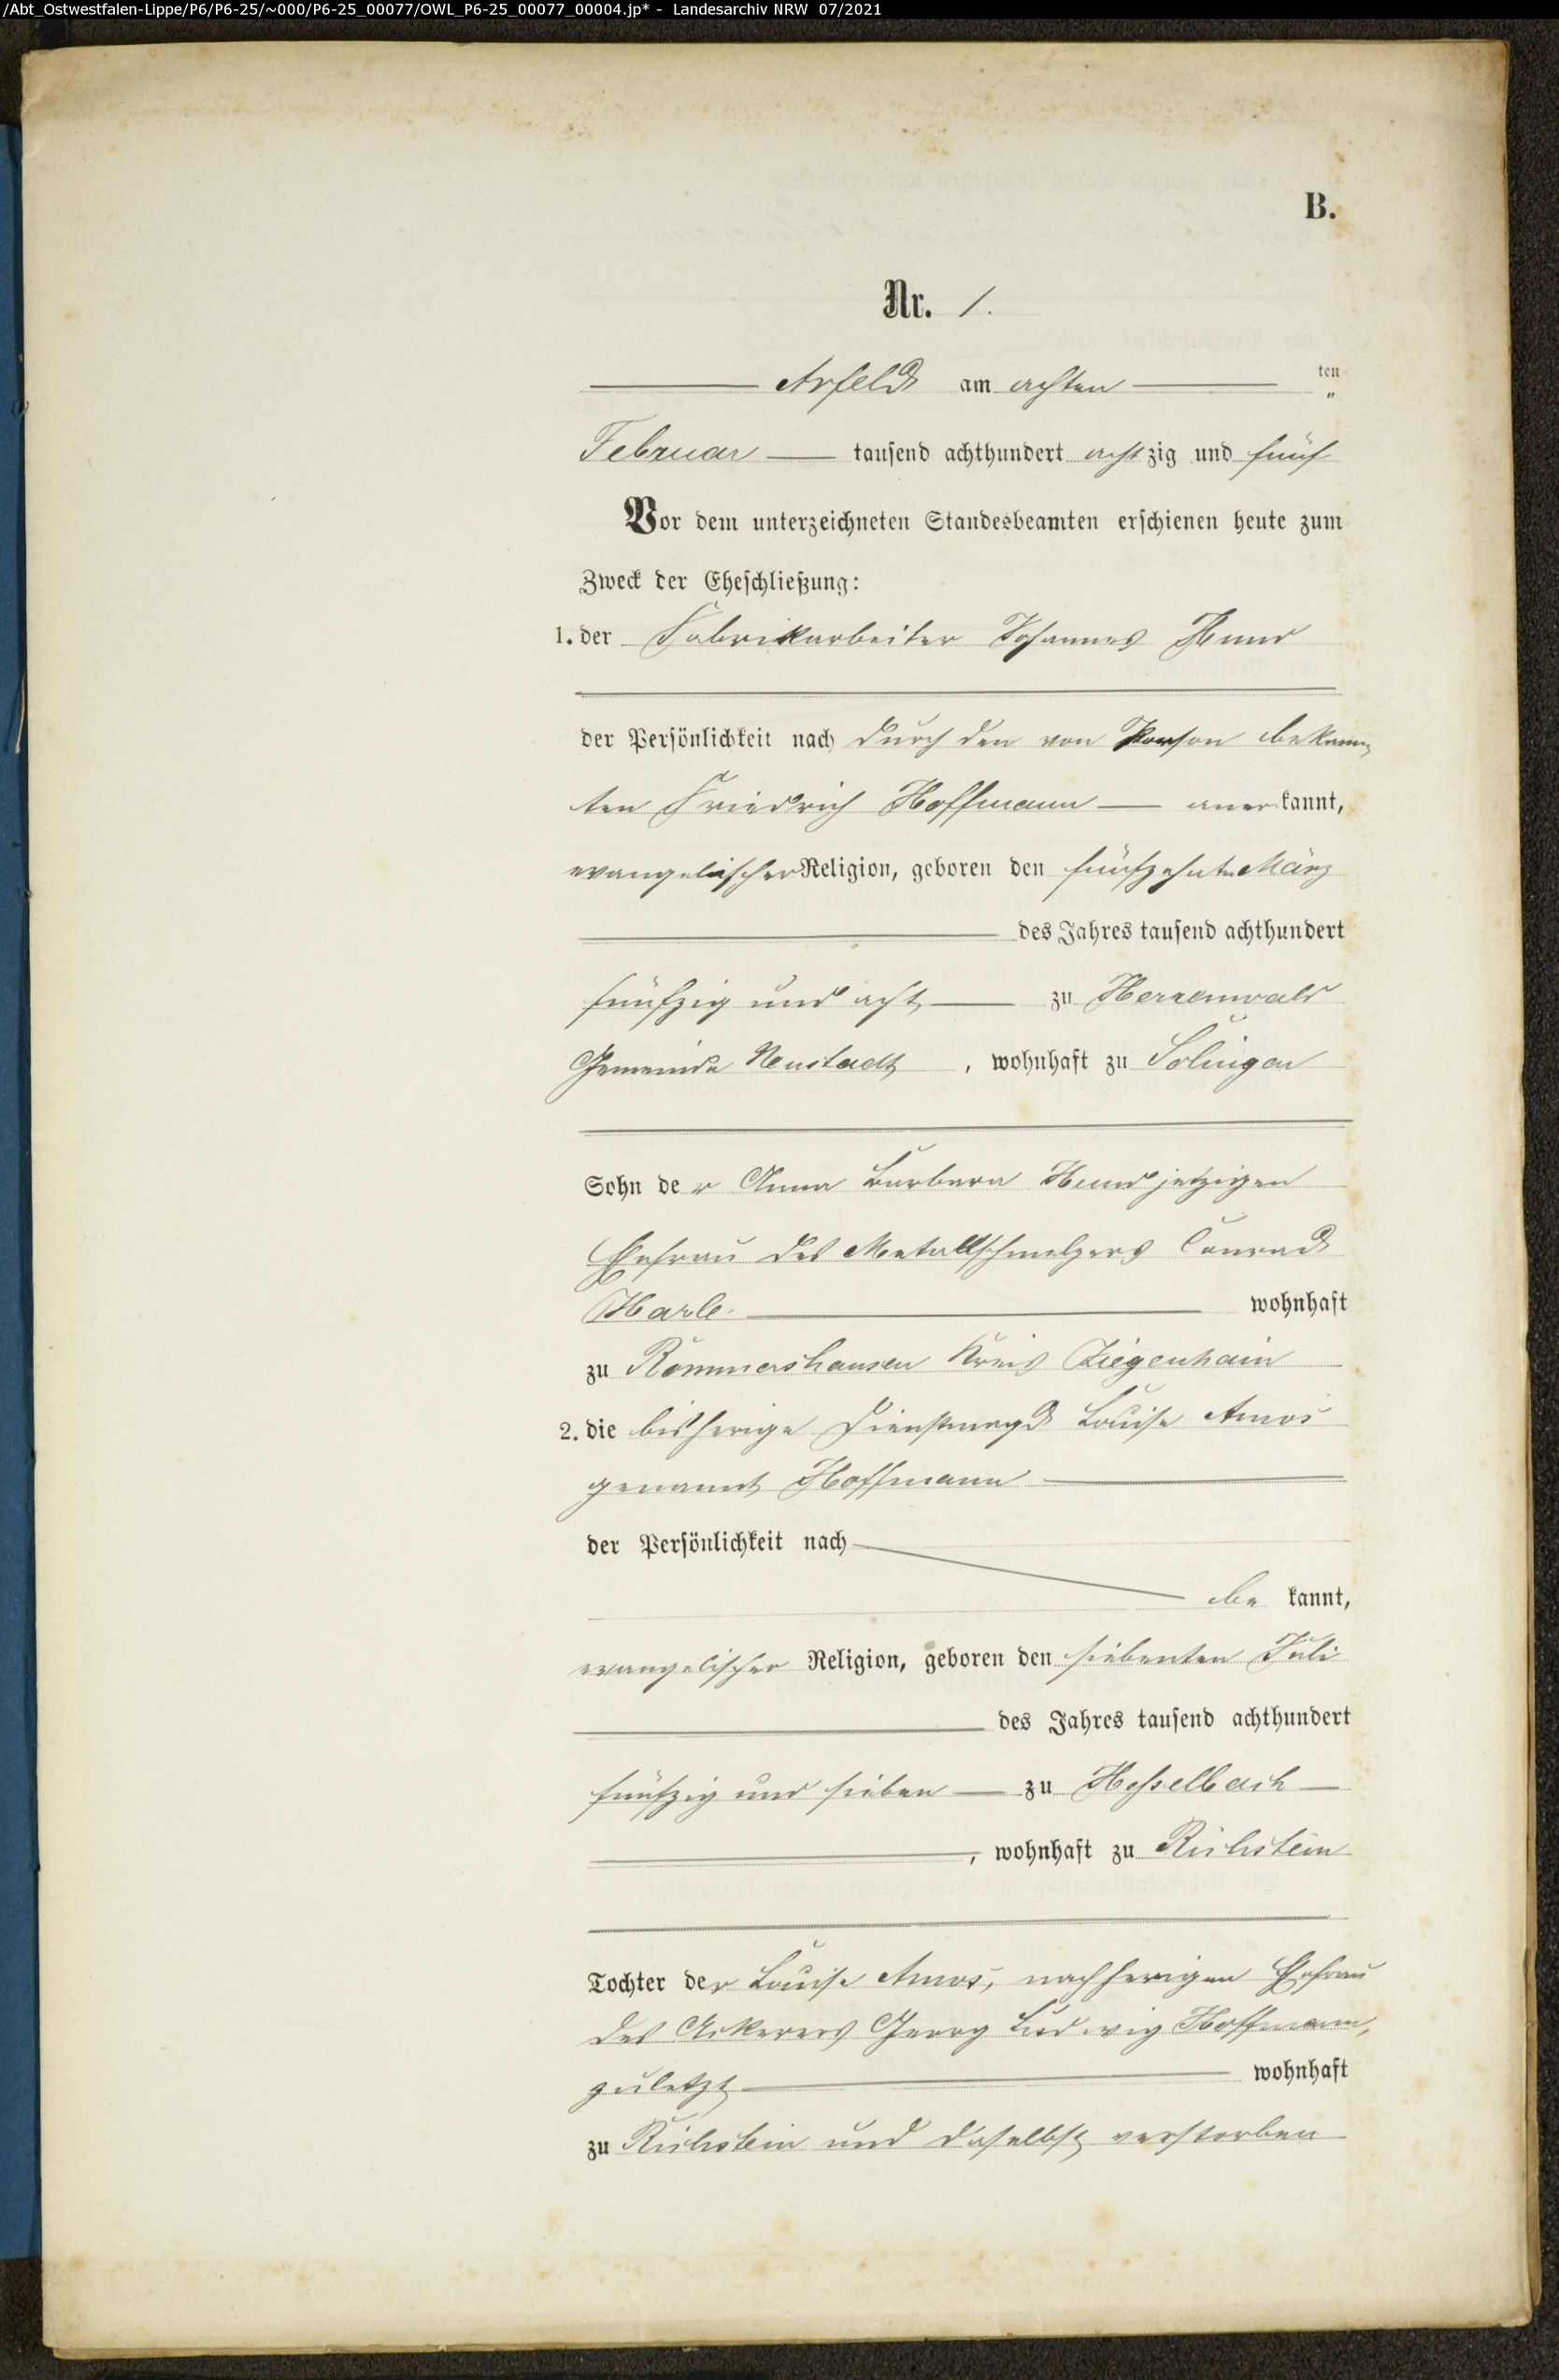 /Abt_Ostwestfalen-Lippe/P6/P6-25/~000/P6-25_00077/OWL_P6-25_00077_00004.jp* - Landesarchiv NRW 07/2021
B.
Nr. 1.
Arfeld am achten ten
Februar tausend achthundert achtzig und fünf
Vor dem unterzeichneten Standesbeamten erschienen heute zum
Zweck der Eheschließung:
1. der Fabrikarbeiter Johannes Hund
der Persönlichkeit nach durch den von Person bekann
ten Friedrich Hoffmann anerkannt,
evangelischer Religion, geboren den fünfzehnten März
des Jahres tausend achthundert
fünfzig und acht zu Herrenwald
Gemeinde Neustadt, wohnhaft zu Solingen
Sohn der Anna Barbara Hund jetzigen
Ehefrau des Metallschmelzers Conrad
Harle wohnhaft
zu Rommershausen Kreis Ziegenhain
2. die bisherige Dienstmagd Louise Amos
genannt Hoffmann
der Persönlichkeit nach
bekannt,
evangelischer Religion, geboren den siebenten Juli
des Jahres tausend achthundert
fünfzig und sieben zu Hesselbach
, wohnhaft zu Richstein
Tochter der Louise Amos, nachherigen Ehefrau
des Ackerers Georg Ludwig Hoffmann,
zuletzt wohnhaft
zu Richstein und daselbst verstorben